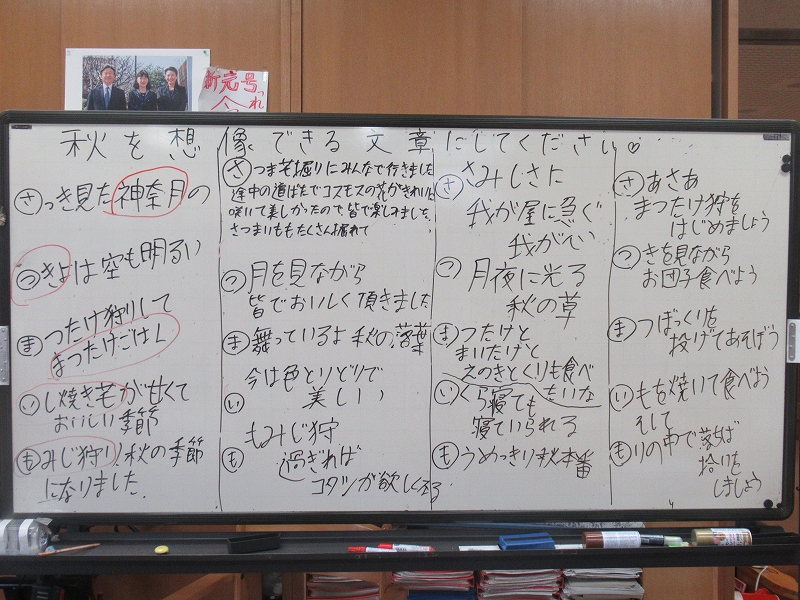 新元号
秋を想像できる文章にしてください♡
さっき見た神奈月の
つきよは空も明るい
まつたけ狩りして
まつたけごはん
いし焼き芋が甘くて
おいしい季節
もみじ狩り秋の季節
になりました。
さつま芋掘りにみんなで行きました
途中の道ばたでコスモスの花がきれいに
咲いて美しかったので、皆で楽しみました。
さつまいももたくさん掘れて
つ月を見ながら
皆でおいしく頂きました
ま舞っているよ秋の落葉
い今は色とりどりで
美しい
ももみじ狩
過ぎれば
コタツが欲しくなる
ささみしさに
我が屋に急ぐ
我が心
つ月夜に光る
秋の草
まつたけと
まいたけと
えのきとくりも食べ
いくら寝てもたいな
寝ていられる
もうめっきり秋本番
さあさあ
まつたけ狩を
はじめましょう
つきを見ながら
お団子食べよう
まつぼっくりを
投げてあそぼう
いもを焼いて食べよう
そして
もりの中で落ちば
拾いを
しましょう